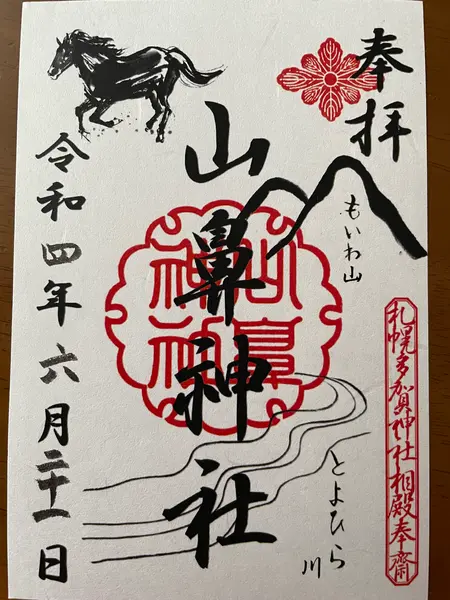 奉拝
もいわ山
札幌多賀神社相殿奉齋
とよひら川
山鼻神社
山鼻神社
令和四年六月二十一日